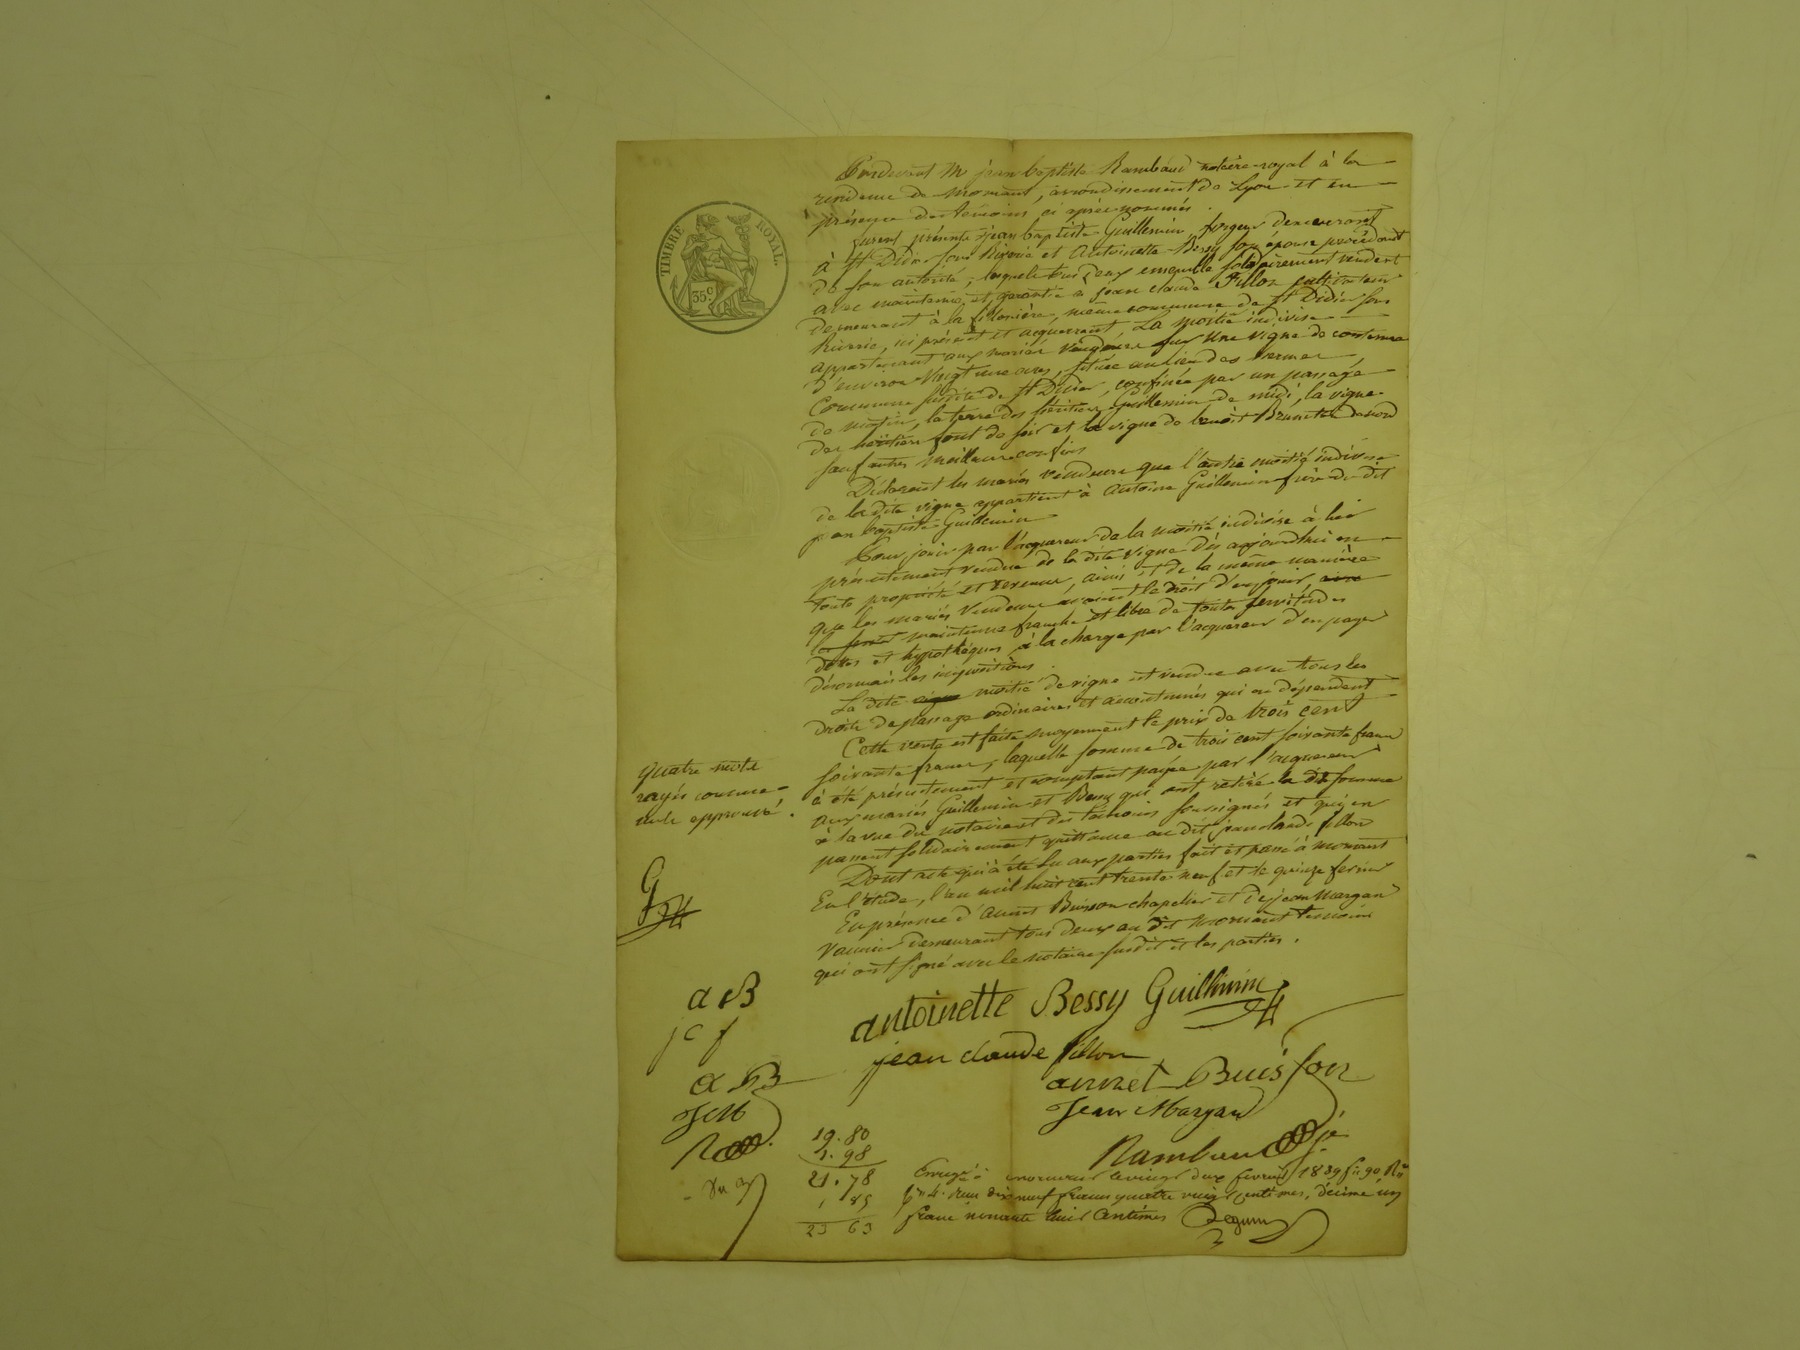 Pardevant Me jean baptiste Rambaud notaire royal à la
residence de Mornant, arrondissement de Lyon et en
présence des temoins ci après nommés.
furent présents jean baptiste Guillemin, forgeur demeurant
à St Didier sous Riverie et Antoinette Bessy son épouse procédant
de son autorité, lesquels tous deux ensemble solidairement vendent
avec maintenue et garantie à jean claude Fillon cultivateur
demeurant à la filonière, même commune de St Didier sous
Riverie, ici présent et acquerrant, La moitié indivise
appartenant aux mariés vendeurs sur Une vigne de contenue
d'environ Vingt une ares, située au lieu des
Commune susdite de St Didier, confinée par un passage
de matin, la terre des héritiers Guillemin de midi, la vigne
des héritiers font de soir et la vigne de benoit Brunetie de nord
sauf autres meilleurs confins
Déclarent les mariés vendeurs que l'autre moitié indivise
de la dite vigne appartient à Antoine Guillemin frère du dit
jean baptiste Guillemin
Pour jouir par l'acquereur de la moitié indivise à lui
présentement vendue de la dite vigne dès aujourdhui en
toute propriété et revenus, ainsi et de la même manière
que les mariés Vendeurs avaient le droit d'en jouir,
maintenue franche et libre de toutes servitudes
dettes et hypothèques à la charge par l'acquereur d'en payer
désormais les impositions.
La dite moitié de vigne est vendue avec tous les
droits de passage ordinaires et accoutumés qui en dépendent
Cette vente est faite moyennant le prix de trois cent
soixante francs, laquelle somme de trois cent soixante francs
à été présentement et comptant payée par l'acquereur
aux mariés Guillemin et Bessy qui ont retiré la dite somme
à la vue du notaire et des témoins soussignés et qui en
passent solidairement quittance au dit jean claude fillon
Dont acte qui à été lu aux parties fait et passé à mornant
En l'étude, l'an mil huit cent trente neuf et le quinze fevrier
En présence d'Annet Buisson chapelier et de jean Margan
Vannier demeurant tous deux au dit Mornant temoins
qui ont signé avec le notaire susdit et les parties.
quatre mots
rayés comme
nuls approuvé.
G
a B
j c f
a B
J M
R
antoinette Bessy Guillimin
jean claude fillon
annet Buisson
Jean Margan
Rambaud
19.80
1.98
21.78
1 85
23 63
Enregé à mornant le vingt deux fevrier 1839 fo 90 Ro
Cs 4. reçu dix neuf francs quatre vingt centimes, décime un
franc nonante huit centimes